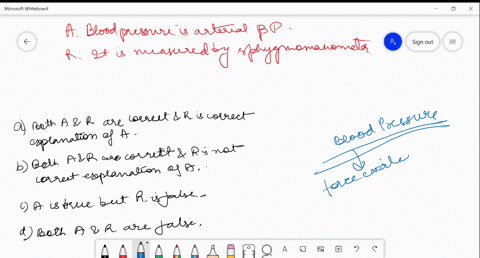 Microsoft Whiteboard
A. Blood pressure is arterial BP.
R. It is measured by sphygmomanometer
Sign out
a) Both A & R are correct & R is correct
explanation of A.
b) Both A & R are correct & R is not
correct explanation of A.
c) A is true but R is false.
d) Both A & R are false.
Blood Pressure
force